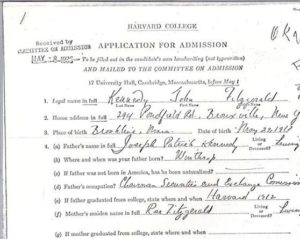 HARVARD COLLEGE
Received by
COMMITTEE ON ADMISSION
MAY
APPLICATION FOR ADMISSION
To be filled out in the candidate's own handwriting (not typewritten)
AND MAILED TO THE COMMITTEE ON ADMISSION
17 University Hall, Cambridge, Massachusetts, before May 1
1. Legal name in full Kennedy John Fitzgerald
Last Name First Name Middle Name
2. Home address in full 294 Pondfield Rd. Bronxville, New
3. Place of birth Brookline Mass. Date of birth May 29 1917
4. (a) Father's name in full Joseph Patrick Kennedy Living or Deceased? Living
(b) Where and when was your father born? Winthrop
(c) If father was not born in America, has he been naturalized?
(d) Father's occupation? Chairman Securities and Exchange Commission
(e) If father graduated from college, state when and where Harvard 1912
(f) Mother's maiden name in full Rose Fitzgerald Living or Deceased?
(g) If mother graduated from college, state when and where